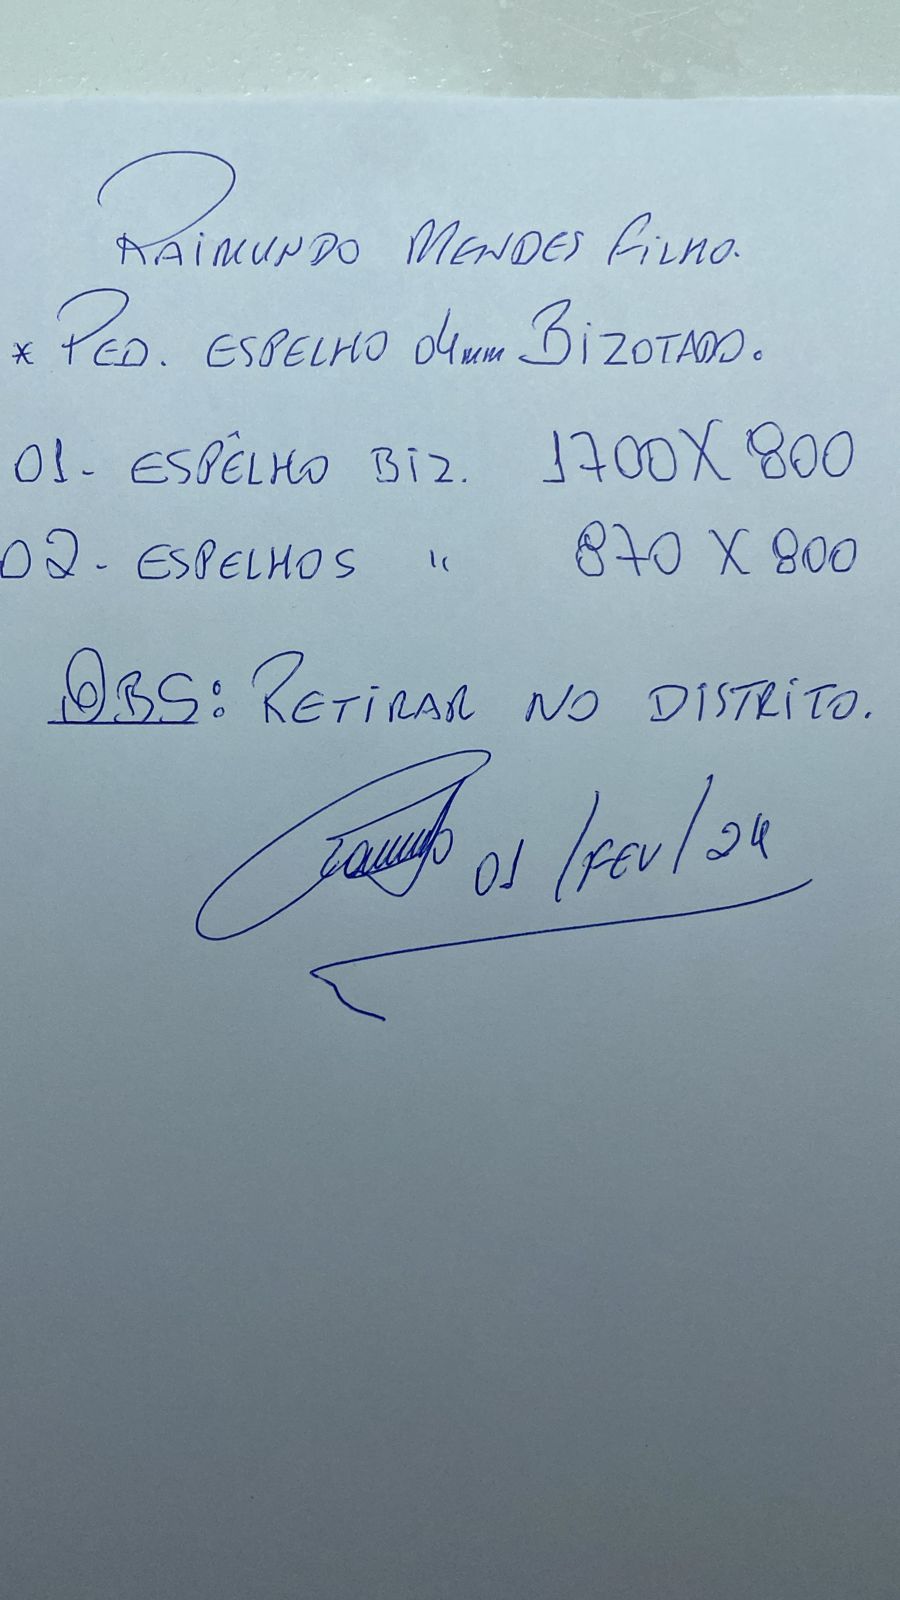 RAIMUNDO MENDES FILHO.
* PED. ESPELHO 04mm BIZOTADO.
01- ESPÊLHO BIZ. 1700 X 800
02- ESPELHOS " 870 X 800
OBS: RETIRAR NO DISTRITO.
01/FEV/24